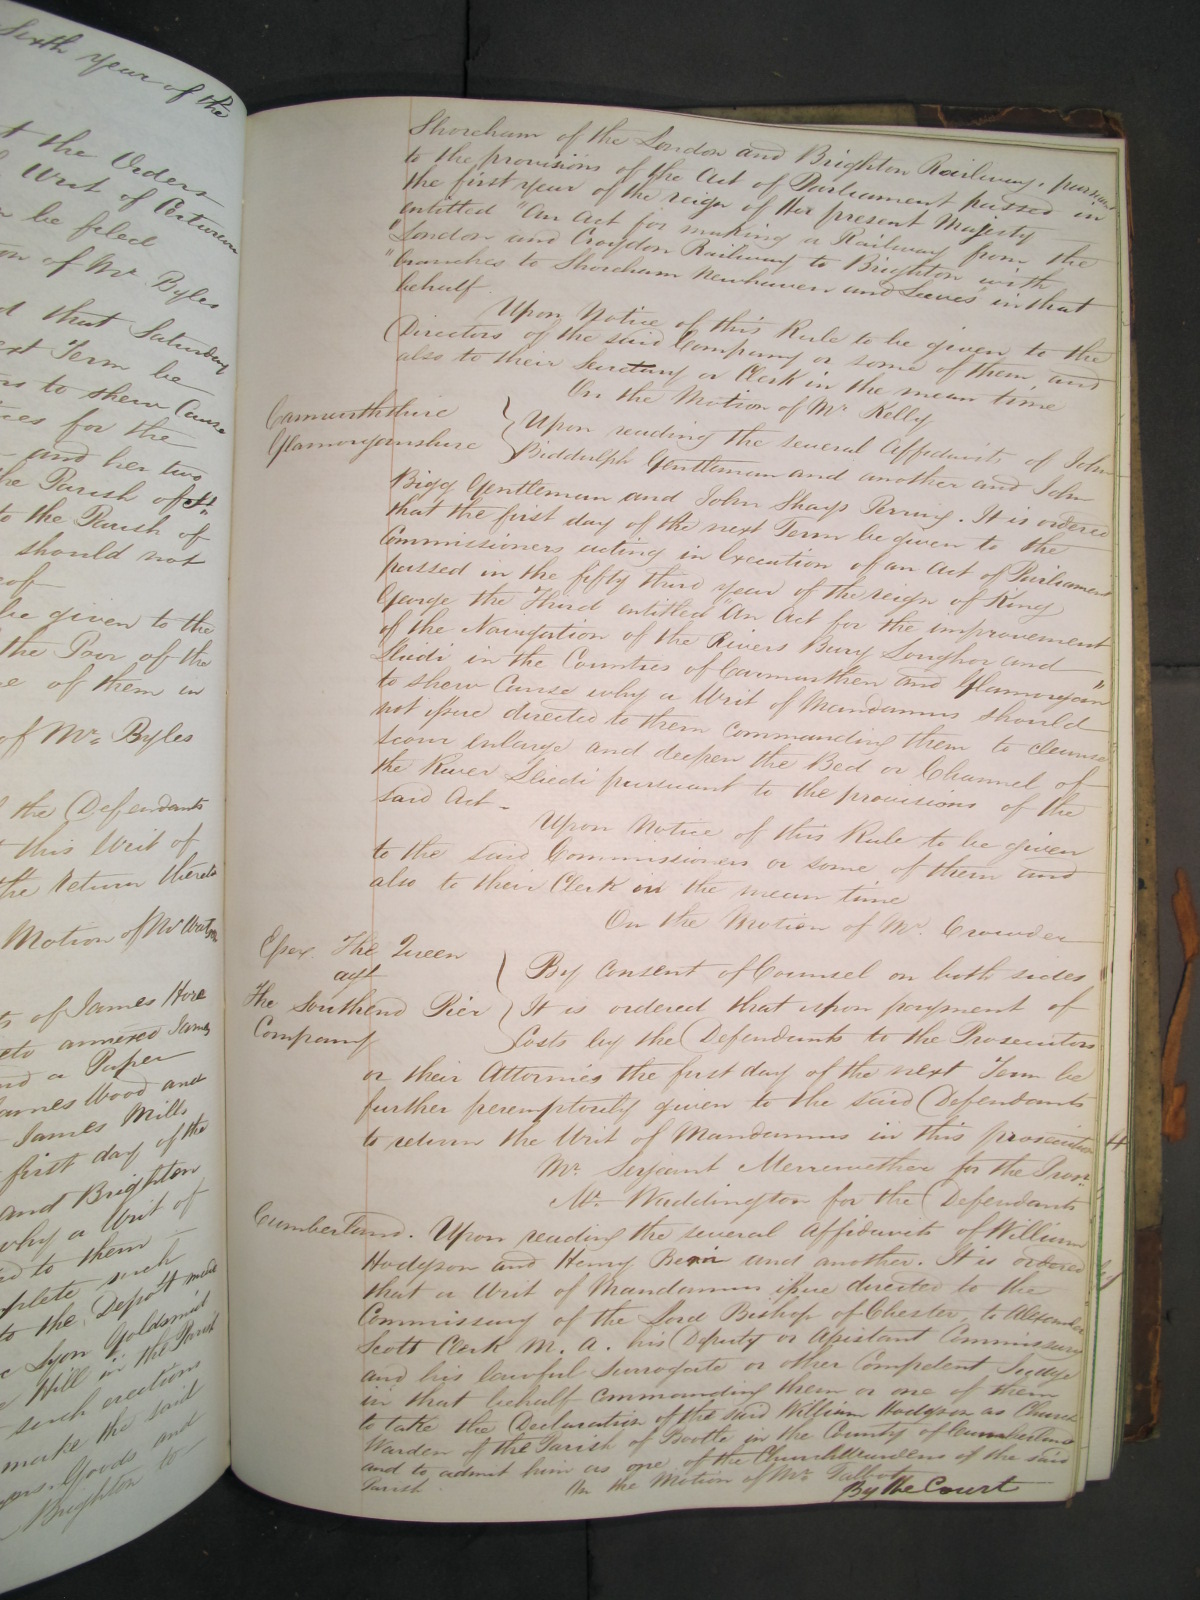 Sixth year of the
t the Orders
Writ of Certiorari
be filed
on of Mr. Byles
d that Saturday
ext Term be
rs to shew Cause
ces for the
and her two
he Parish of St.
to the Parish of
should not
eof
be given to the
the Poor of the
e of them in
of Mr. Byles
the Defendants
this Writ of
the Return thereto
Motion of Mr Watson
ts of James Hore
eto annexed James
and a Paper
James Wood and
James Mills
first day of the
and Brighton
why a Writ of
ed to them
plete such
to the Depot made
c Lyon Goldsmid
Hill in the Parish
such erections
make the said
gers Goods and
Brighton to
Shoreham of the London and Brighton Railway, pursuant
to the provisions of the Act of Parliament passed in
the first year of the reign of Her present Majesty
entitled "An Act for making a Railway from the
"London and Croydon Railway to Brighton with
"branches to Shoreham Newhaven and Lewes" in that
behalf.
Upon Notice of this Rule to be given to the
Directors of the said Company or some of them, and
also to their Secretary or Clerk in the mean time
On the Motion of Mr. Kelly
Carmarthshire
Glamorganshire
Upon reading the several Affidavits of John
Biddulph Gentleman and another and John
Bigg Gentleman and John Sharp Perring. It is ordered
that the first day of the next Term be given to the
Commissioners acting in Execution of an Act of Parliament
passed in the fifty third year of the reign of King
George the Third entitled "An Act for the improvement
of the Navigation of the Rivers Bury Loughor and
Lliedi in the Counties of Carmarthen and Glamorgan"
to shew Cause why a Writ of Mandamus should
not issue directed to them commanding them to cleanse
scour enlarge and deepen the Bed or Channel of
the River Lliedi pursuant to the provisions of the
said Act -
Upon Notice of this Rule to be given
to the said Commissioners or some of them and
also to their Clerk in the mean time
On the Motion of Mr. Crowder
Essex. The Queen
agt
The Southend Pier
Company
By Consent of Counsel on both sides
It is ordered that upon payment of
Costs by the Defendants to the Prosecutors
or their Attornies the first day of the next Term be
further peremptorily given to the said Defendants
to return the Writ of Mandamus in this prosecution
Mr. Serjeant Merewether for the Pros.
Mr. Waddington for the Defendants
Cumberland. Upon reading the several Affidavits of William
Hodgson and Henry and another. It is ordered
that a Writ of Mandamus issue directed to the
Commissary of the Lord Bishop of Chester, to Alexander
Scott Clerk M. A. his Deputy or Assistant Commissary
and his lawful Surrogate or other Competent Judge
in that behalf commanding them or one of them
to take the Declaration of the said William Hodgson as Church
Warden of the Parish of Bootle in the County of Cumberland
and to admit him as one of the Churchwardens of the said
Parish. On the Motion of Mr. Talbot
By the Court